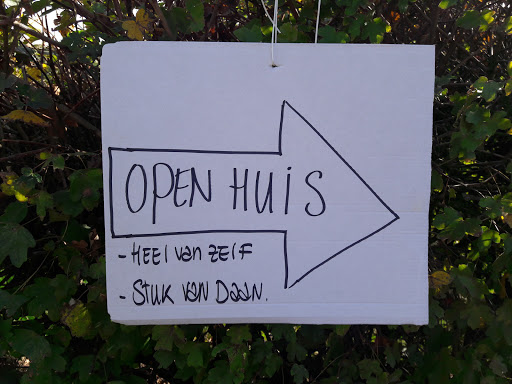 OPEN HUIS
- HEEL van ZELF
- STUK van DAAN.